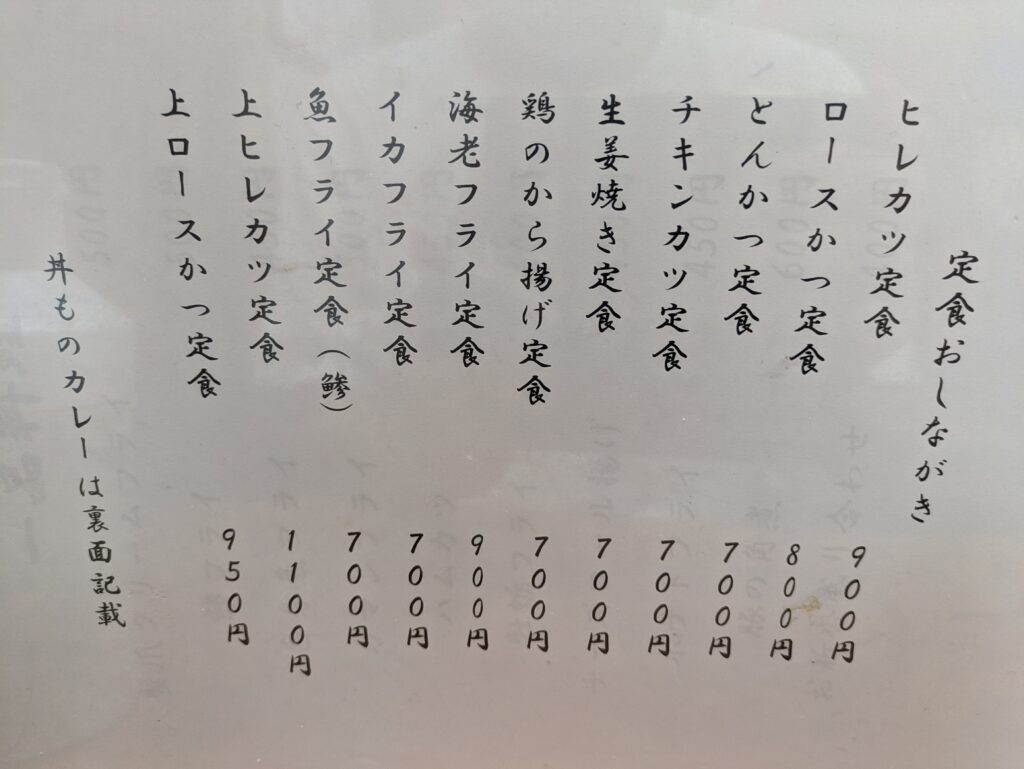 定食おしながき
ヒレカツ定食 900円
ロースかつ定食 800円
とんかつ定食 700円
チキンカツ定食 700円
生姜焼き定食 700円
鶏のから揚げ定食 700円
海老フライ定食 900円
イカフライ定食 700円
魚フライ定食（鯵） 700円
上ヒレカツ定食 1100円
上ロースかつ定食 950円
丼ものカレーは裏面記載